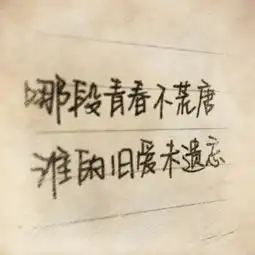 哪段青春不荒唐
谁的旧爱未遗忘